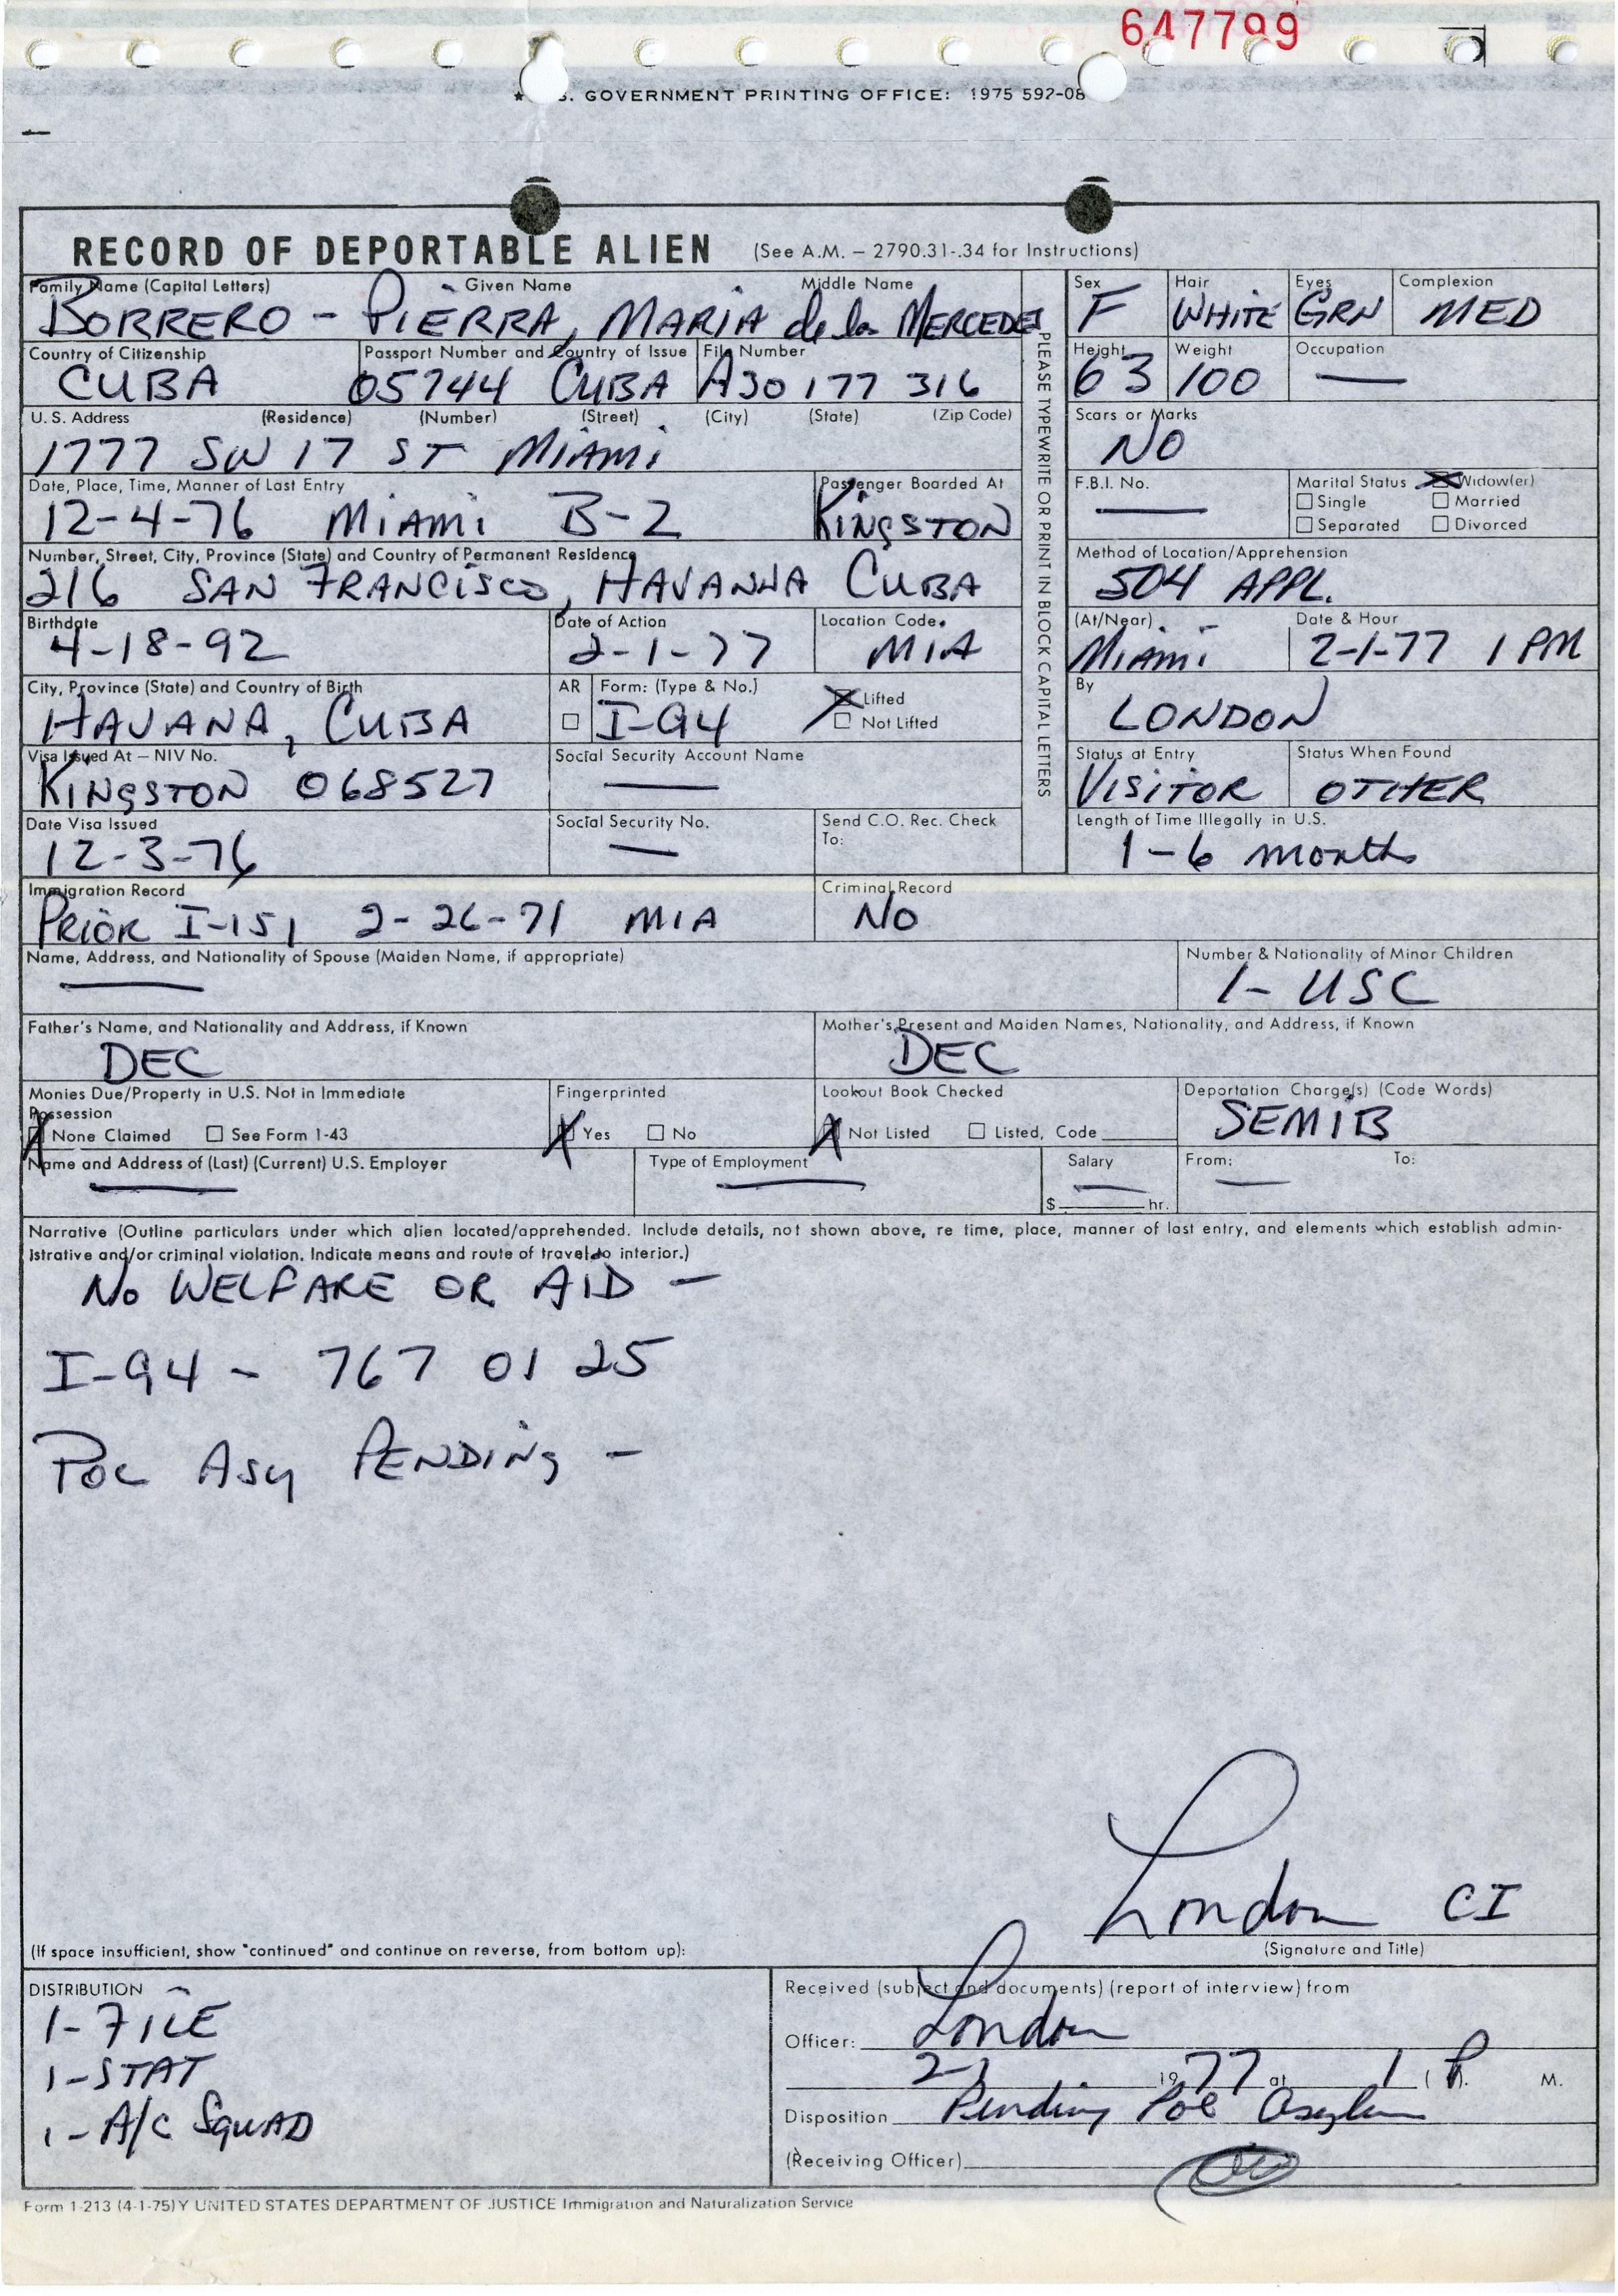 647799
GOVERNMENT PRINTING OFFICE: 1975 592-08
RECORD OF DEPORTABLE ALIEN (See A.M. – 2790.31-.34 for Instructions)
Family Name (Capital Letters) Given Name Middle Name
BORRERO - PIERRA, MARIA de la MERCEDES
Sex Hair Eyes Complexion
F WHITE GRN MED
Country of Citizenship Passport Number and Country of Issue File Number
CUBA 05744 CUBA A30 177 316
Height Weight Occupation
63 100 —
U.S. Address (Residence) (Number) (Street) (City) (State) (Zip Code)
1777 SW 17 ST MIAMI
Scars or Marks
NO
Date, Place, Time, Manner of Last Entry Passenger Boarded At
12-4-76 MIAMI B-2 KINGSTON
F.B.I. No. Marital Status Widow(er)
— Single Married
Separated Divorced
Number, Street, City, Province (State) and Country of Permanent Residence
216 SAN FRANCISCO, HAVANNA CUBA
Method of Location/Apprehension
504 APPL.
Birthdate Date of Action Location Code
4-18-92 2-1-77 MIA
(At/Near) Date & Hour
MIAMI 2-1-77 1 PM
City, Province (State) and Country of Birth AR Form: (Type & No.) Lifted
HAVANA, CUBA I-94 Not Lifted
By
LONDON
Visa Issued At – NIV No. Social Security Account Name
KINGSTON 068527 —
Status at Entry Status When Found
VISITOR OTHER
Date Visa Issued Social Security No. Send C.O. Rec. Check
To:
12-3-76 —
Length of Time Illegally in U.S.
1-6 months
PLEASE TYPEWRITE OR PRINT IN BLOCK CAPITAL LETTERS
Immigration Record Criminal Record
PRIOR I-151 2-26-71 MIA NO
Name, Address, and Nationality of Spouse (Maiden Name, if appropriate) Number & Nationality of Minor Children
— 1- USC
Father's Name, and Nationality and Address, if Known Mother's Present and Maiden Names, Nationality, and Address, if Known
DEC DEC
Monies Due/Property in U.S. Not in Immediate Fingerprinted Lookout Book Checked Deportation Charge(s) (Code Words)
Possession SEMIB
None Claimed See Form 1-43 Yes No Not Listed Listed, Code
Name and Address of (Last) (Current) U.S. Employer Type of Employment Salary From: To:
— — — —
$ hr.
Narrative (Outline particulars under which alien located/apprehended. Include details, not shown above, re time, place, manner of last entry, and elements which establish admin-
istrative and/or criminal violation. Indicate means and route of travel to interior.)
NO WELFARE OR AID —
I-94 - 767 01 25
POL ASY PENDING —
London CI
(If space insufficient, show "continued" and continue on reverse, from bottom up): (Signature and Title)
DISTRIBUTION
1- FILE
1- STAT
1- A/C SQUAD
Received (subject and documents) (report of interview) from
Officer: London
2-1 1977 at 1 (P). M.
Disposition Pending Pol Asylum
(Receiving Officer)
Form 1-213 (4-1-75)Y UNITED STATES DEPARTMENT OF JUSTICE Immigration and Naturalization Service